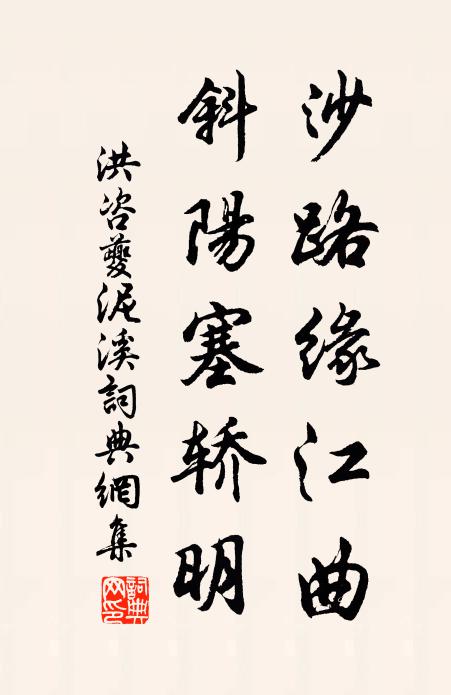 沙路缘江曲
斜陽塞轿明
洪咨夔泥溪詞典網集
詞典網印